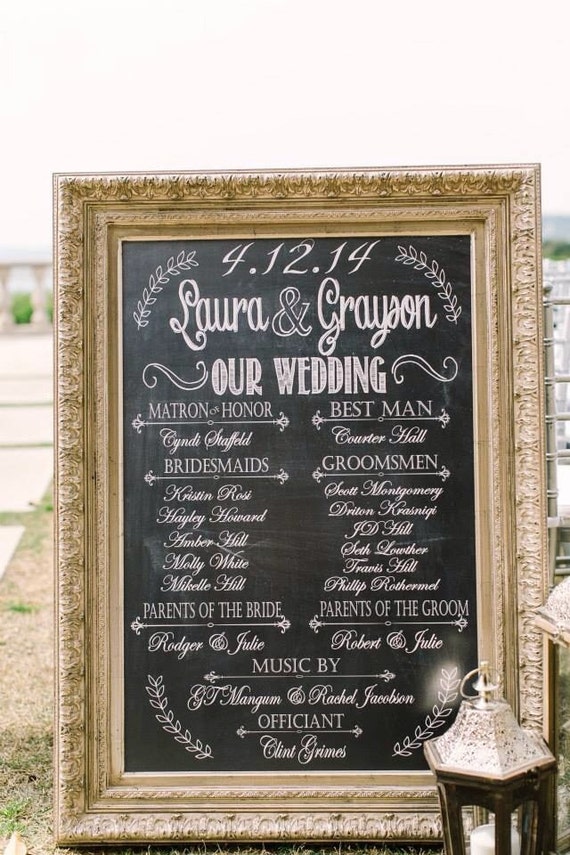 4.12.14
Laura & Grayson
OUR WEDDING
MATRON OF HONOR
Cyndi Staffeld
BEST MAN
Courter Hall
BRIDESMAIDS
Kristin Rosi
Hayley Howard
Amber Hill
Molly White
Mikelle Hill
GROOMSMEN
Scott Montgomery
Driton Krasniqi
JD Hill
Seth Lowther
Travis Hill
Phillip Rothermel
PARENTS OF THE BRIDE
Rodger & Julie
PARENTS OF THE GROOM
Robert & Julie
MUSIC BY
GT Mangum & Rachel Jacobson
OFFICIANT
Clint Grimes